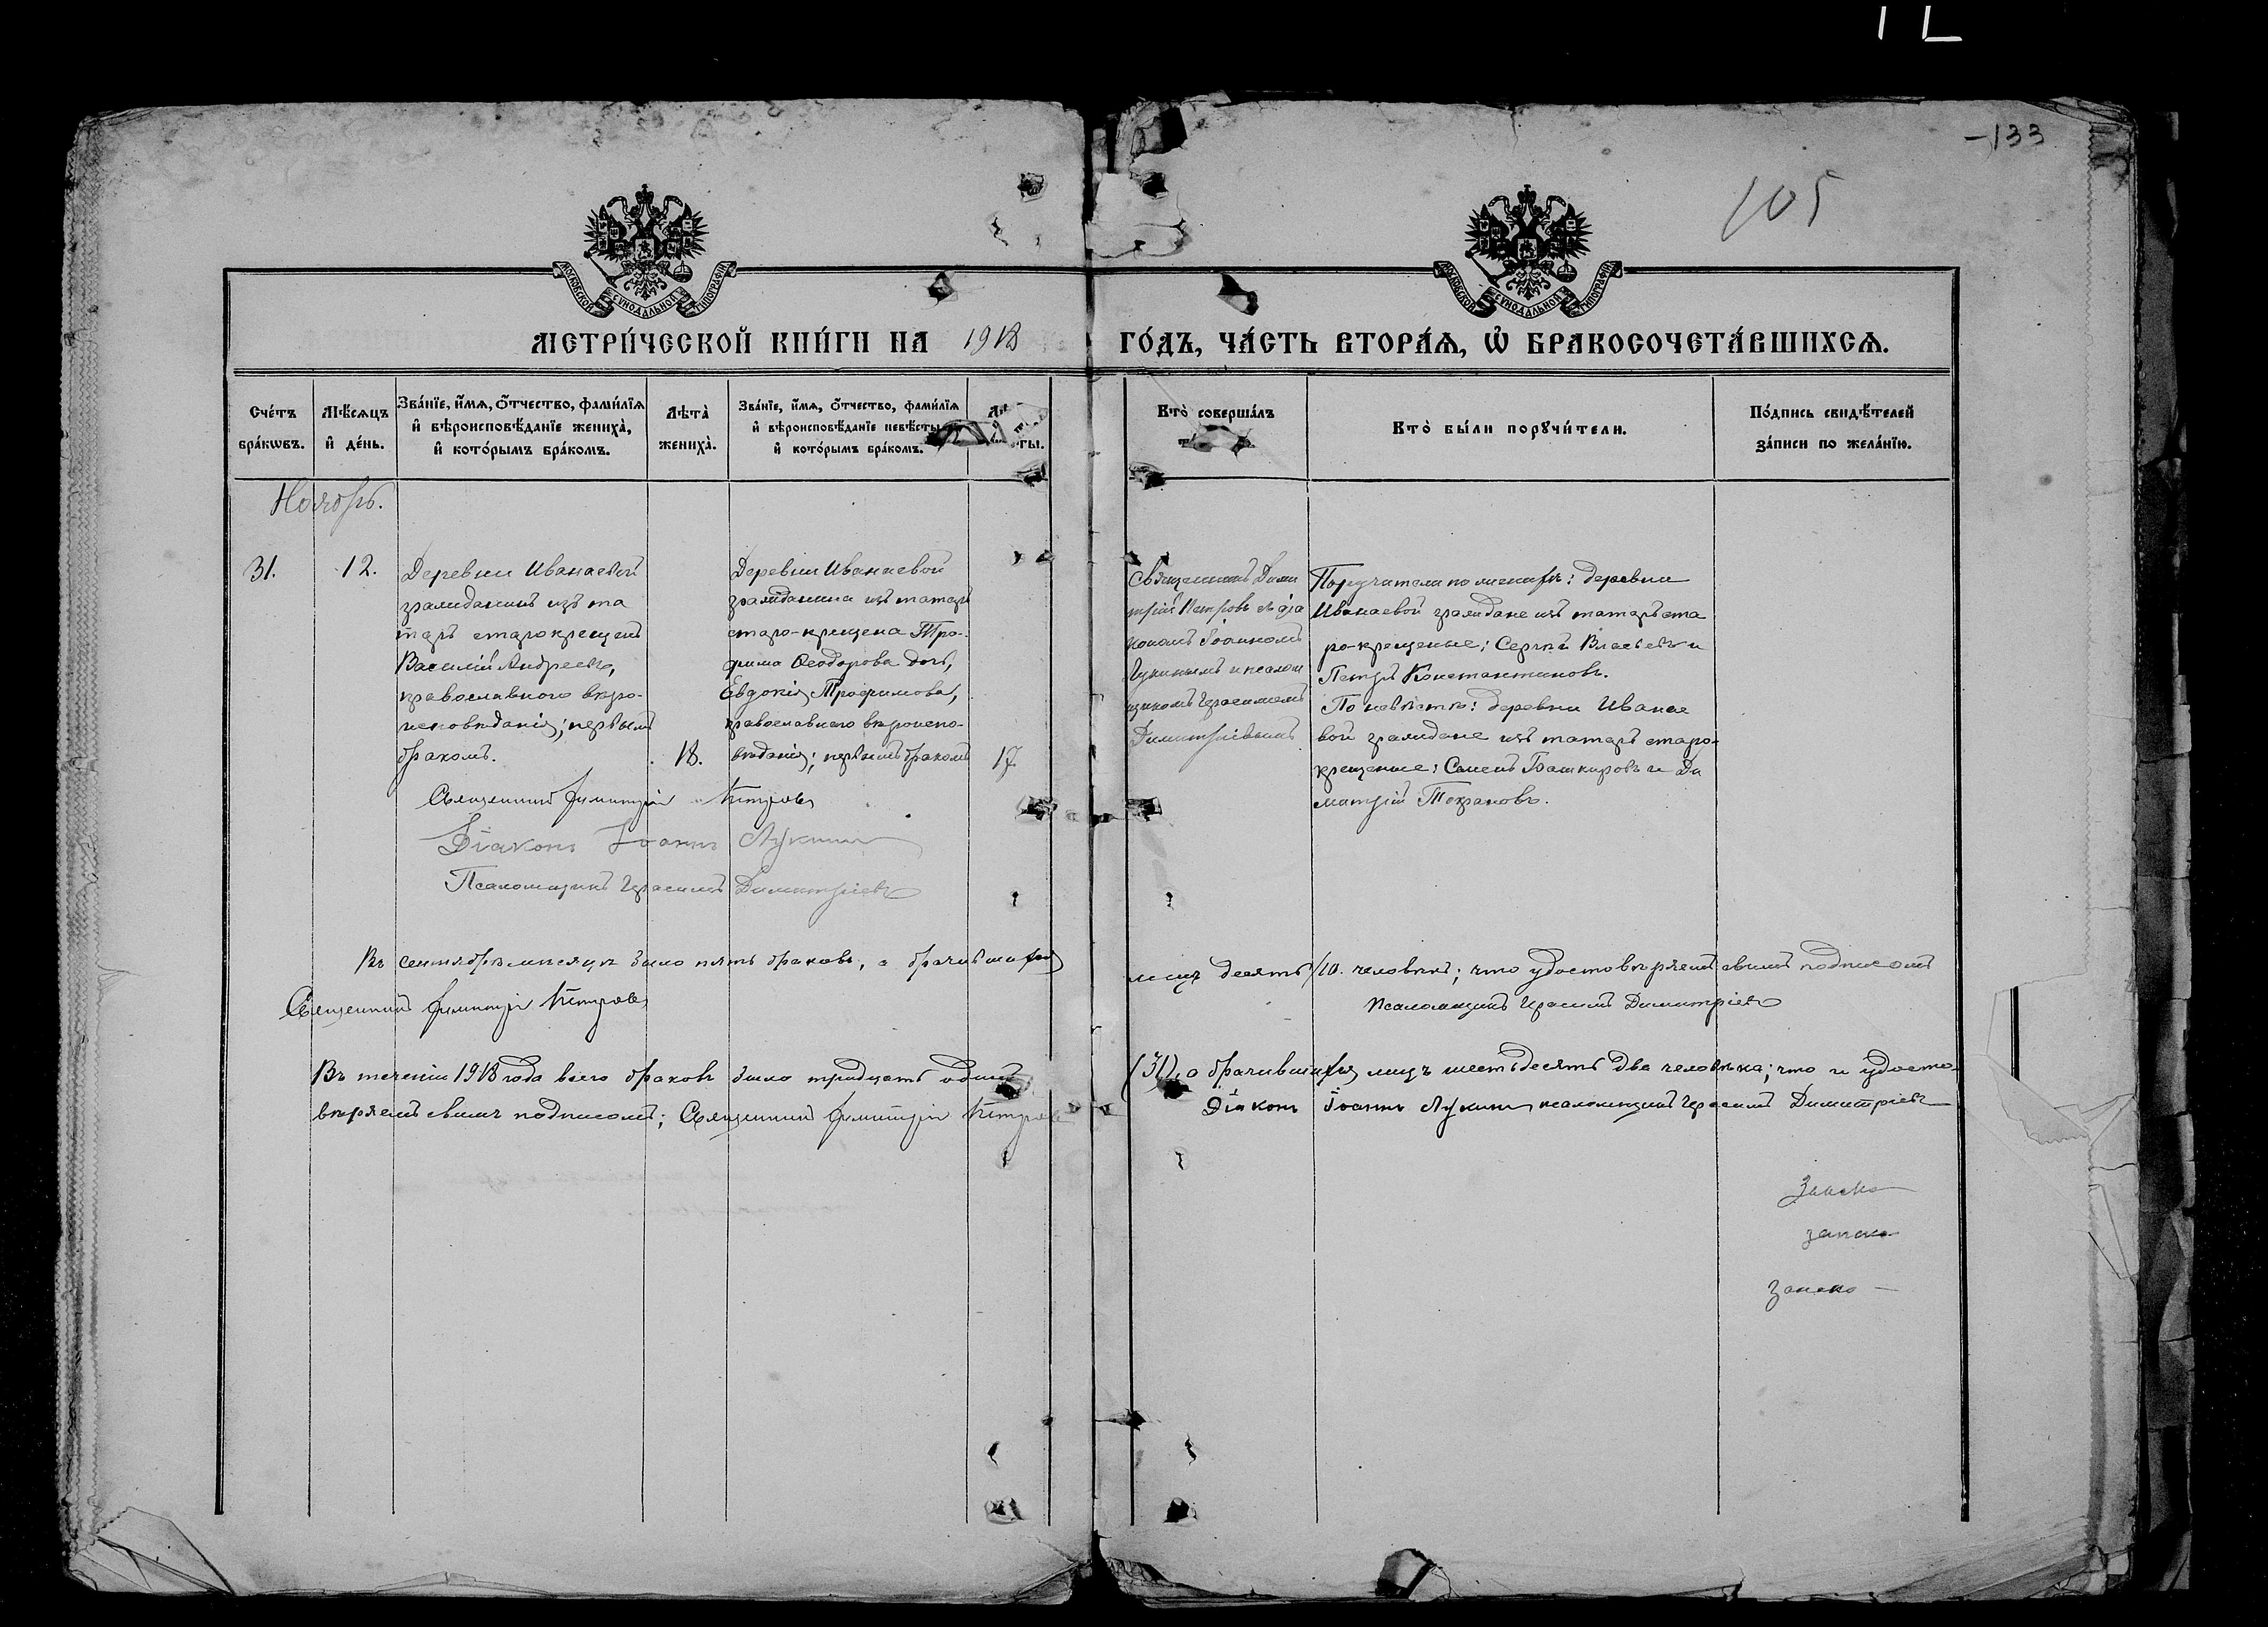 133
105
МОСКОВСКОЙ СѴНОДАЛЬНОЙ ТИПОГРАФІИ
МОСКОВСКОЙ СѴНОДАЛЬНОЙ ТИПОГРАФІИ
МЕТРИ́ЧЕСКОЙ КНИ́ГИ НА 1918 ГО́ДЪ, ЧА́СТЬ ВТОРА́Ѧ, Ѽ БРАКОСОЧЕТА́ВШИХСѦ.
Сче́тъ
бра́кѡвъ.
Мѣ́сѧцъ
и҆ де́нь.
Зва́нїе, и҆́мѧ, ѻ҆́тчество, фами́лїѧ
и҆ вѣроисповѣ́данїе жениха̀,
и҆ кото́рымъ бра́комъ.
Лѣта̀
жениха̀.
Зва́нїе, и҆́мѧ, ѻ҆́тчество, фами́лїѧ
и҆ вѣроисповѣ́данїе невѣ́сты
и҆ кото́рымъ бра́комъ.
Кто̀ соверша́лъ
Кто̀ бы́ли порꙋчи́тели.
По́дпись свидѣ́телей
за́писи по жела́нїю.
Ноябрь.
31.
12.
Деревни Иванаевой
гражданинъ изъ та
таръ старокрещенъ
Василій Андреевъ,
православнаго вѣро-
исповѣданія; первымъ
бракомъ.
18.
Деревни Иванаевой
гражданина изъ татаръ
старо-крещена Тро-
фима Ѳеодорова дочь,
Евдокія Трофимова,
православнаго вѣроиспо-
вѣданія; первымъ бракомъ
17.
Священникъ Дими
трій Петровъ съ діа
кономъ Іоанномъ
Лукинымъ и псалом
щикомъ Герасимомъ
Димитріевымъ
Поручители по женихѣ: деревни
Иванаевой граждане изъ татаръ ста
ро-крещеные: Сергѣй Власьевъ и
Петръ Константиновъ.
По невѣстѣ: деревни Иванае
вой граждане изъ татаръ старо-
крещеные: Семенъ Башкировъ и Ди
митрій
Священникъ Димитрій Петровъ
Діаконъ Іоаннъ Лукинъ
Псаломщикъ Герасимъ Димитріевъ
Въ сентябрѣ мѣсяцѣ было пять браковъ, а брачившихся
лицъ десять /10. человѣкъ; что удостовѣряемъ своимъ подписомъ
Священникъ Димитрій Петровъ
Псаломщикъ Герасимъ Димитріевъ
Въ теченіи 1918 года всего браковъ было тридцать одинъ
(31), а брачившихся лицъ шестьдесятъ два человѣка; что и удосто-
вѣряемъ своимъ подписомъ; Священникъ Димитрій Петровъ
Діаконъ Іоаннъ Лукинъ псаломщикъ Герасимъ Димитріевъ